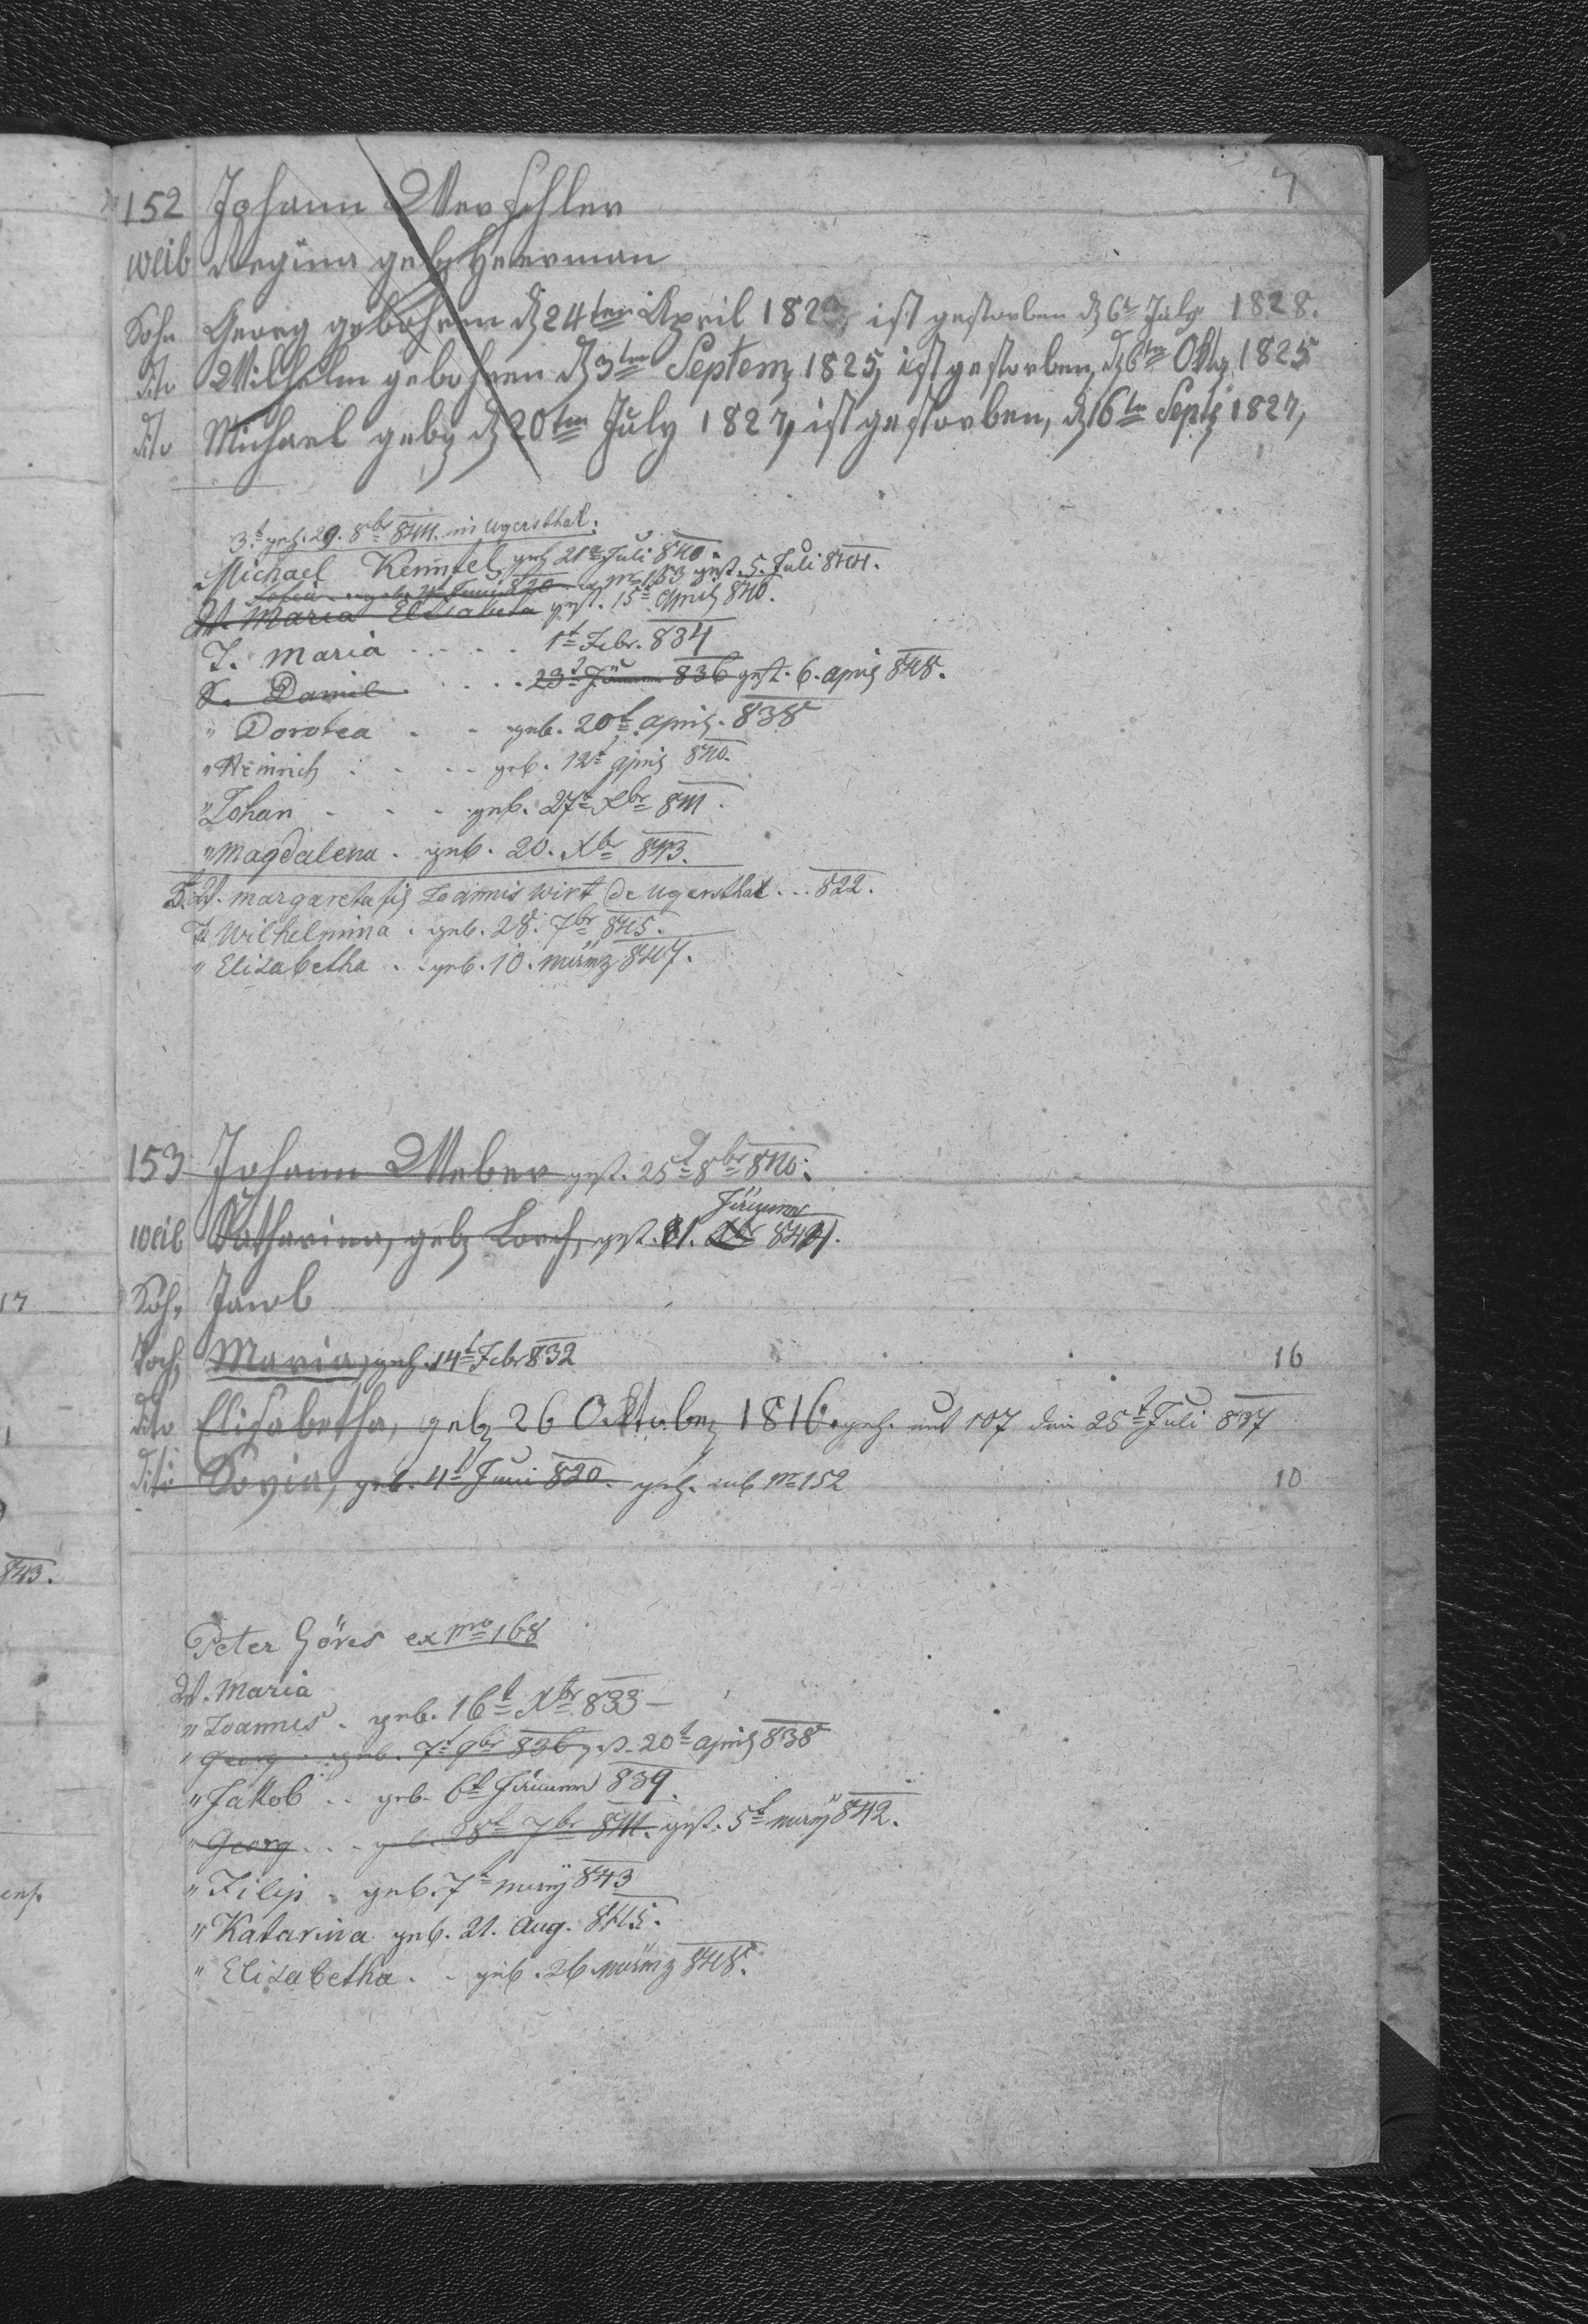 7
152 Johann Werschler
weib Regina geb Heerman
Sohn Georg gebohren d 24ten April 182 ist gestorben d 6t July 1828.
dito Wilhelm gebohren d 3ten Septem 1825, ist gestorben, d 6ten Okto 1825
dito Michael geb d 20ten July 1827, ist gestorben, d 16ten Sept 1827,
3t geh. 29. 8br 844. in Ugersthal.
Michael Kempel geh 21t Juli 840.
Sofia geb. 4t Juni 820 ex No 153 gest. 5. Juli 844.
W. Maria Elisabeta gest. 15t April 840.
T. Maria . . . . . 1t Febr. 834
S. Daniel . . . . . 23t Jänner 836 gest. 6. April 848.
" Dorotea . . geb. 20t April. 838
" Heinrich . . . . geb. 12t April 840.
" Johan . . . geb. 27t Xbr 841.
" Magdalena . geb. 20. Xbr 843.
3t W. Margareta fil Joannis Wirt de Ugersthal . . . 822.
T. Wilhelmina . geb. 28. 7br 845.
" Elisabetha . . geb. 10. März 847.
153 Johann Weber gest. 25t 8br 840.
Jänner
weib Catharina, geb Lorch, gest. 31. Xbr 841.
Soh. Jacob
Toch, Maria, geh. 14t Febr 832 16
dito Elisabetha, geb 26 Oktober 1816 geh. auf 107 den 25t Juli 837
dito Sovia, geb. 4t Juni 820. geh. auf No 152 10
843.
17
Peter Göres ex No 168
W. Maria
" Joannes . geb. 16t Xbr 833 –
" Georg . geb. 7t 9br 836 gest. 20t April 838
" Jakob . . geb. 6t Jänner 839.
" Georg . . . geb. 28t 7br 841. gest. 5t März 842.
" Filip . geb. 7t März 843
" Katarina geb. 21. Aug. 845.
" Elisabetha . . geb. 26. März 848.